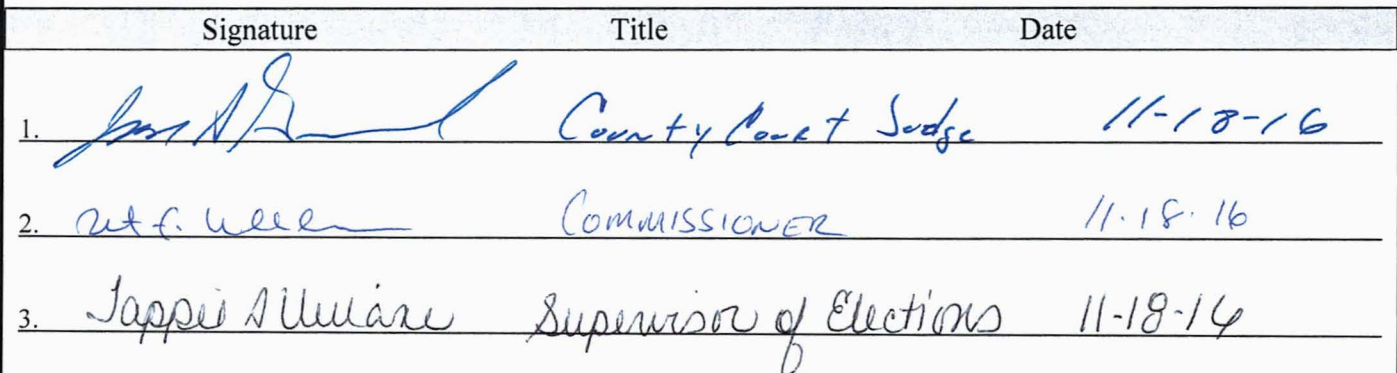 Signature Title Date
1. County Court Judge 11-18-16
2. COMMISSIONER 11.18.16
3. Tappie Supervisor of Elections 11-18-16